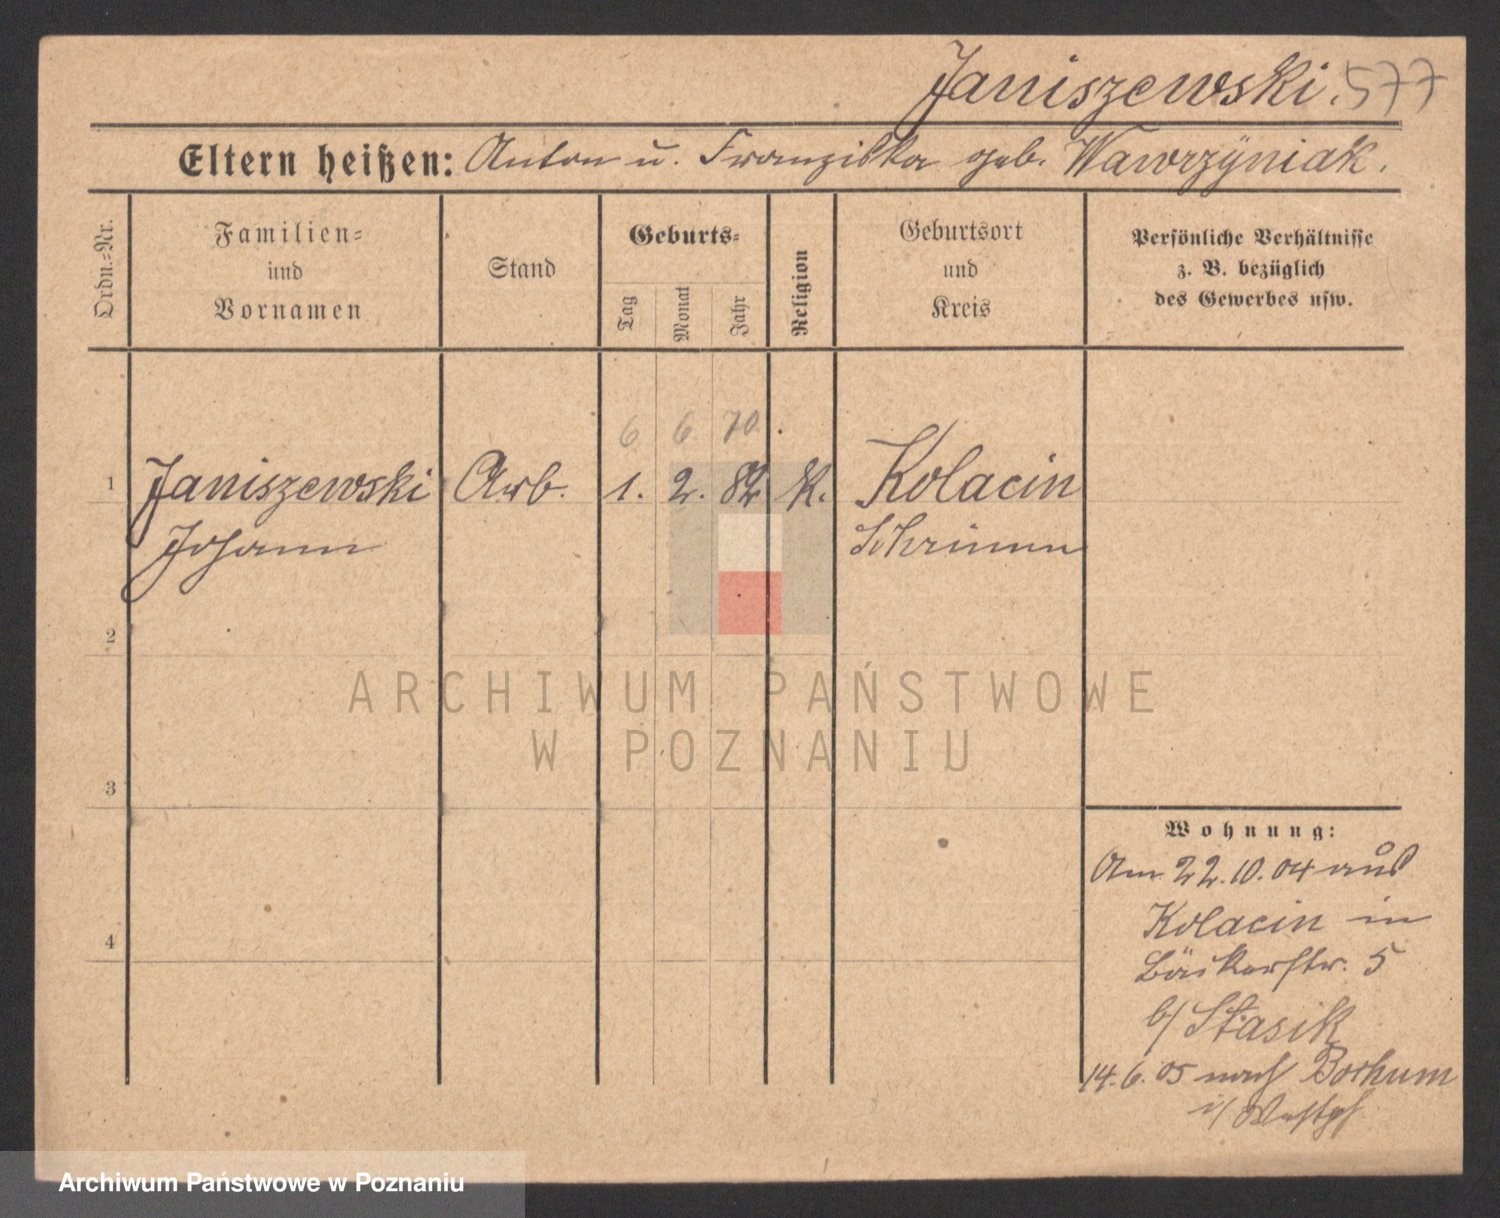 Janiszewski. 577
Eltern heißen: Anton u. Franziska geb. Wawrzÿniak.
Ordn.=Nr.
Familien=
und
Vornamen
Stand
Geburts=
Tag
Monat
Jahr
Religion
Geburtsort
und
Kreis
Persönliche Verhältnisse
z. B. bezüglich
des Gewerbes usw.
6. 6. 70.
1 Janiszewski Arb. 1. 2. 82 K. Kolacin
Johann Schrimm
2
3
4
ARCHIWUM PAŃSTWOWE
W POZNANIU
Wohnung:
Am 22.10.04 aus
Kolacin in
Bäckerstr. 5
b/ Stasik
14.6.05 nach Bochum
i/ Westpf
Archiwum Państwowe w Poznaniu